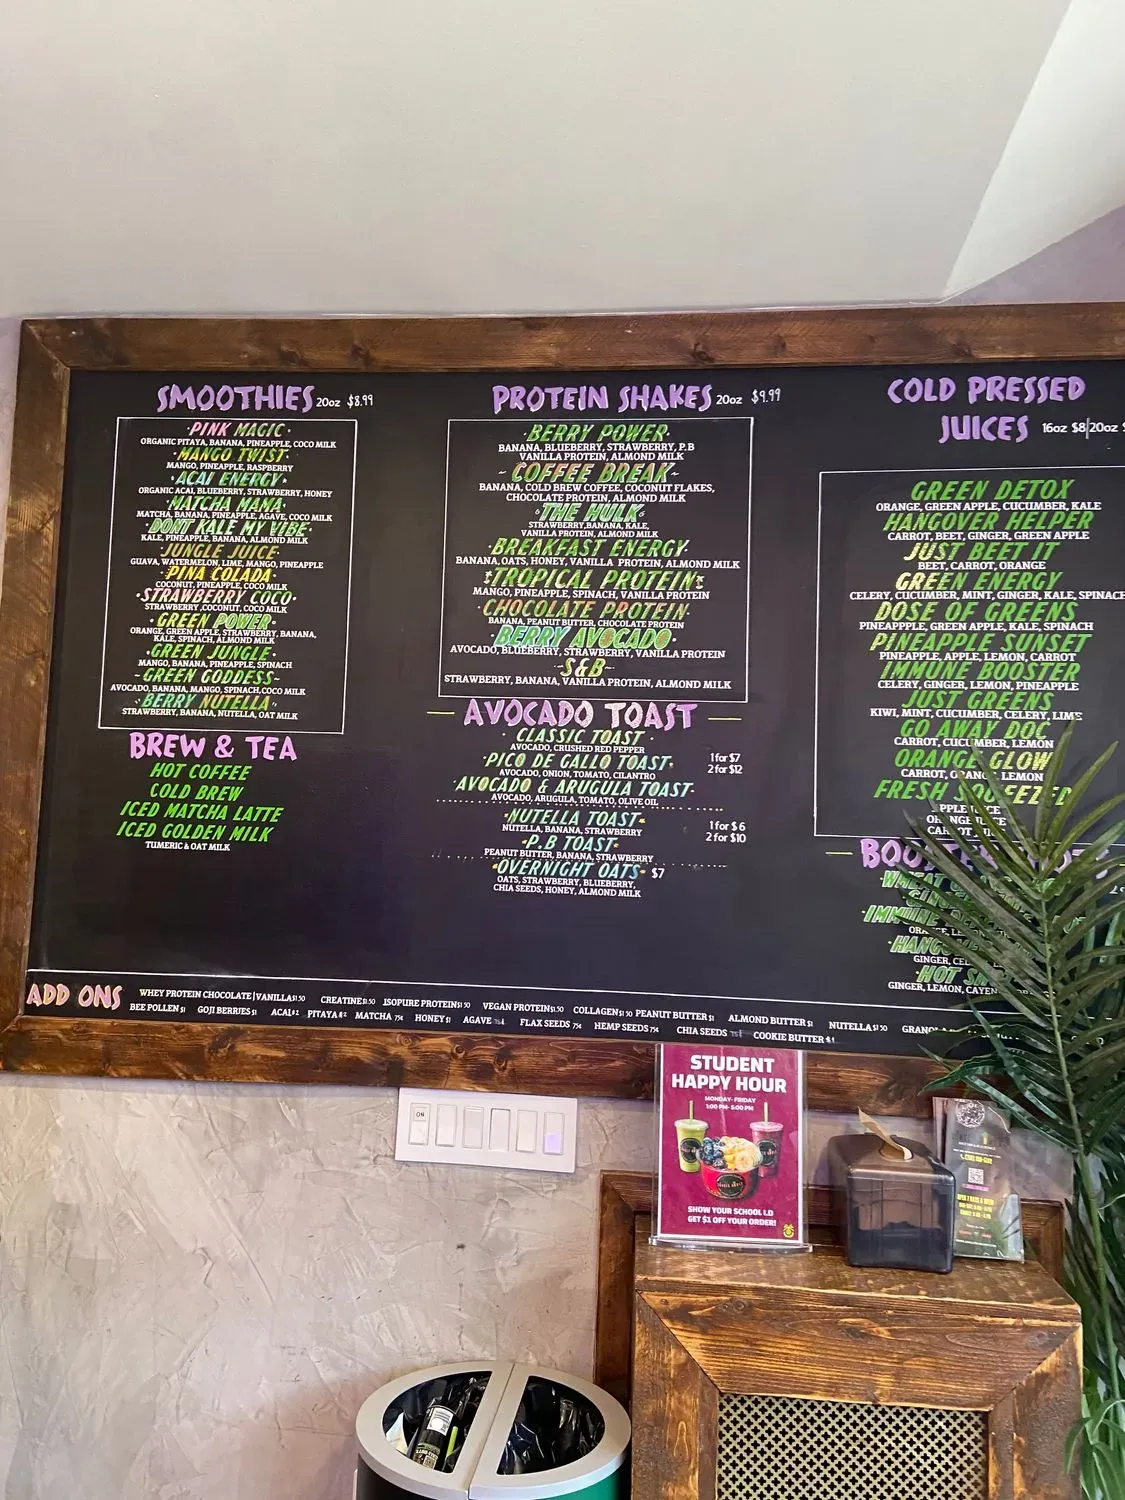 SMOOTHIES 20oz $8.99
PINK MAGIC
ORGANIC PITAYA, BANANA, PINEAPPLE, COCO MILK
MANGO TWIST
MANGO, PINEAPPLE, RASPBERRY
ACAI ENERGY
ORGANIC ACAI, BLUEBERRY, STRAWBERRY, HONEY
MATCHA MAMA
MATCHA, BANANA, PINEAPPLE, AGAVE, COCO MILK
DONT KALE MY VIBE
KALE, PINEAPPLE, BANANA, ALMOND MILK
JUNGLE JUICE
GUAVA, WATERMELON, LIME, MANGO, PINEAPPLE
PINA COLADA
COCONUT, PINEAPPLE, COCO MILK
STRAWBERRY COCO
STRAWBERRY ,COCONUT, COCO MILK
GREEN POWER
ORANGE, GREEN APPLE, STRAWBERRY, BANANA,
KALE, SPINACH, ALMOND MILK
GREEN JUNGLE
MANGO, BANANA, PINEAPPLE, SPINACH
~GREEN GODDESS~
AVOCADO, BANANA, MANGO, SPINACH,COCO MILK
BERRY NUTELLA
STRAWBERRY, BANANA, NUTELLA, OAT MILK
BREW & TEA
HOT COFFEE
COLD BREW
ICED MATCHA LATTE
ICED GOLDEN MILK
TUMERIC & OAT MILK
PROTEIN SHAKES 20oz $9.99
BERRY POWER
BANANA, BLUEBERRY, STRAWBERRY, P.B
VANILLA PROTEIN, ALMOND MILK
~COFFEE BREAK~
BANANA, COLD BREW COFFEE, COCONUT FLAKES,
CHOCOLATE PROTEIN, ALMOND MILK
THE HULK
STRAWBERRY,BANANA, KALE,
VANILLA PROTEIN, ALMOND MILK
BREAKFAST ENERGY
BANANA,OATS, HONEY, VANILLA PROTEIN, ALMOND MILK
TROPICAL PROTEIN
MANGO, PINEAPPLE, SPINACH, VANILLA PROTEIN
CHOCOLATE PROTEIN
BANANA, PEANUT BUTTER, CHOCOLATE PROTEIN
BERRY AVOCADO
AVOCADO, BLUEBERRY, STRAWBERRY, VANILLA PROTEIN
S&B
STRAWBERRY, BANANA, VANILLA PROTEIN, ALMOND MILK
AVOCADO TOAST
CLASSIC TOAST
AVOCADO, CRUSHED RED PEPPER
PICO DE GALLO TOAST
AVOCADO, ONION, TOMATO, CILANTRO
AVOCADO & ARUGULA TOAST
AVOCADO, ARUGULA, TOMATO, OLIVE OIL
1 for $7
2 for $12
NUTELLA TOAST
NUTELLA, BANANA, STRAWBERRY
P.B TOAST
PEANUT BUTTER, BANANA, STRAWBERRY
1 for $6
2 for $10
OVERNIGHT OATS $7
OATS, STRAWBERRY, BLUEBERRY,
CHIA SEEDS, HONEY, ALMOND MILK
COLD PRESSED
JUICES 16oz $8|20oz
GREEN DETOX
ORANGE, GREEN APPLE, CUCUMBER, KALE
HANGOVER HELPER
CARROT, BEET, GINGER, GREEN APPLE
JUST BEET IT
BEET, CARROT, ORANGE
GREEN ENERGY
CELERY, CUCUMBER, MINT, GINGER, KALE, SPINACH
DOSE OF GREENS
PINEAPPPLE, GREEN APPLE, KALE, SPINACH
PINEAPPLE SUNSET
PINEAPPLE, APPLE, LEMON, CARROT
IMMUNE BOOSTER
CELERY, GINGER, LEMON, PINEAPPLE
JUST GREENS
KIWI, MINT, CUCUMBER, CELERY, LIME
GO AWAY DOC
CARROT, CUCUMBER, LEMON
ORANGE GLOW
CARROT, ORANGE, LEMON
FRESH SQUEEZED
APPLE JUICE
ORANGE JUICE
CARROT JUICE
WHEAT
IMMUNE
HOT
GINGER, LEMON,
ADD ONS
WHEY PROTEIN CHOCOLATE|VANILLA $1.50 CREATINE $1.50 ISOPURE PROTEIN $1.50 VEGAN PROTEIN $1.50 COLLAGEN $1.50 PEANUT BUTTER $1 ALMOND BUTTER $1 NUTELLA $1.50
BEE POLLEN $1 GOJI BERRIES $1 ACAI $2 PITAYA $2 MATCHA 75¢ HONEY $1 AGAVE 75¢ FLAX SEEDS 75¢ HEMP SEEDS 75¢ CHIA SEEDS 75¢ COOKIE BUTTER $1
ON
STUDENT
HAPPY HOUR
MONDAY- FRIDAY
1:00 PM- 5:00 PM
SHOW YOUR SCHOOL I.D
GET $1 OFF YOUR ORDER!